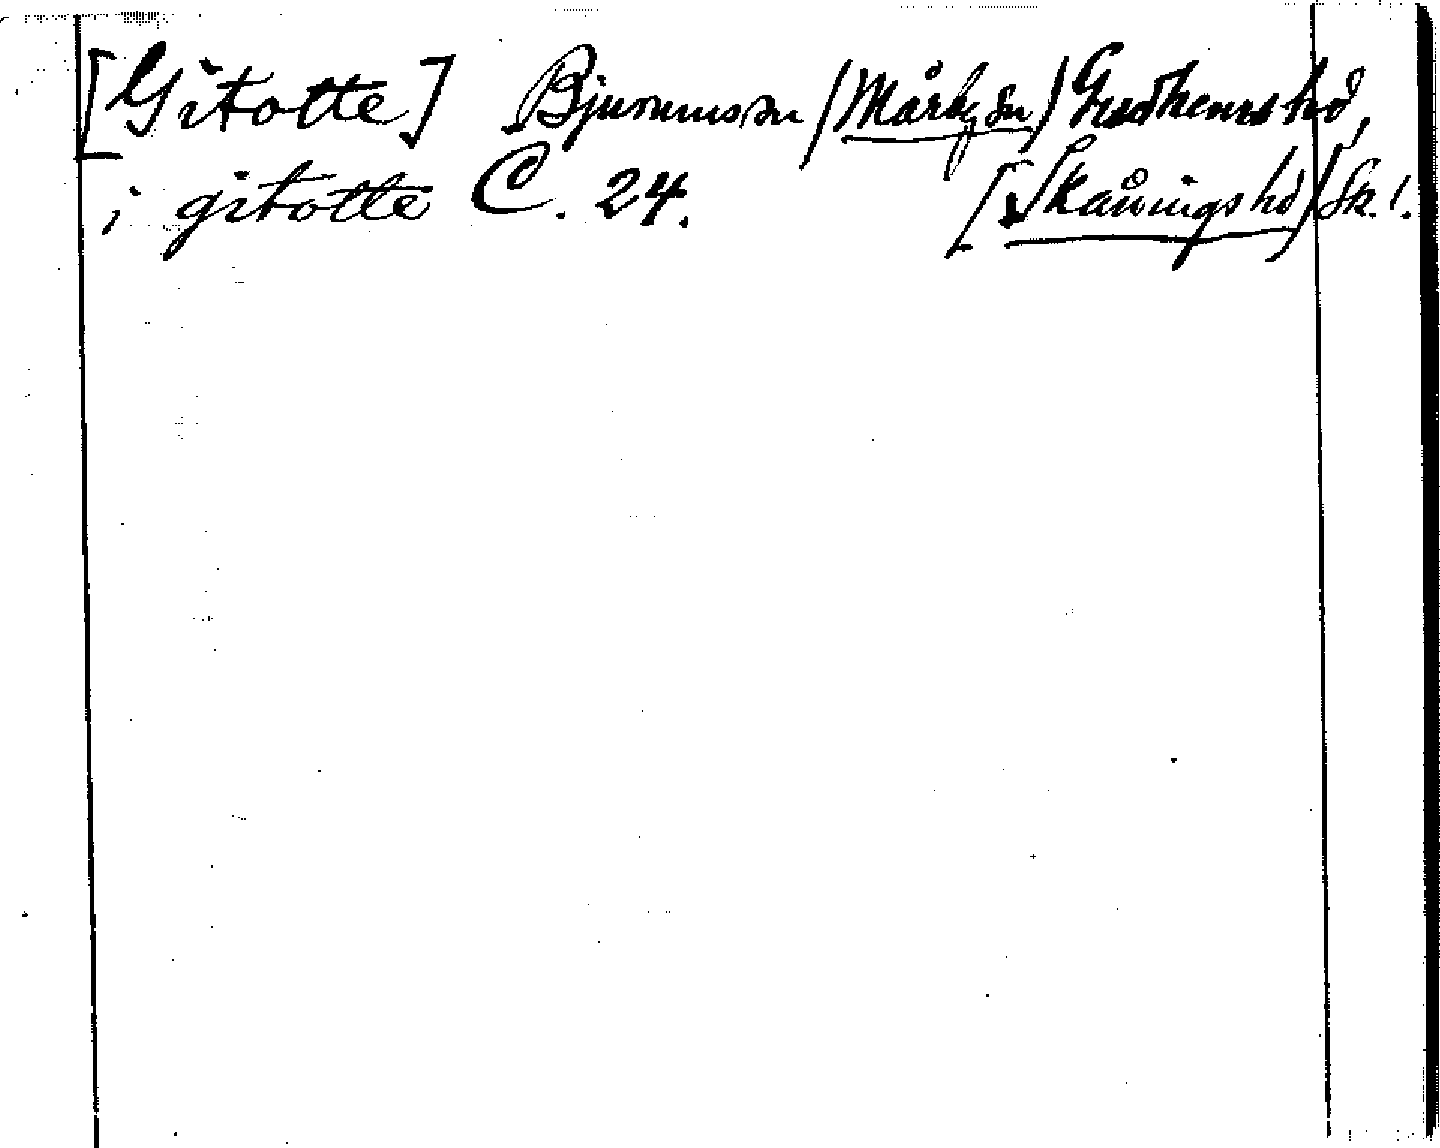 [Gitotte] Bjurumssn (Mårbysn) Gudhemshd,
i gitotte C. 24. [Skåningshd] Sk. l.